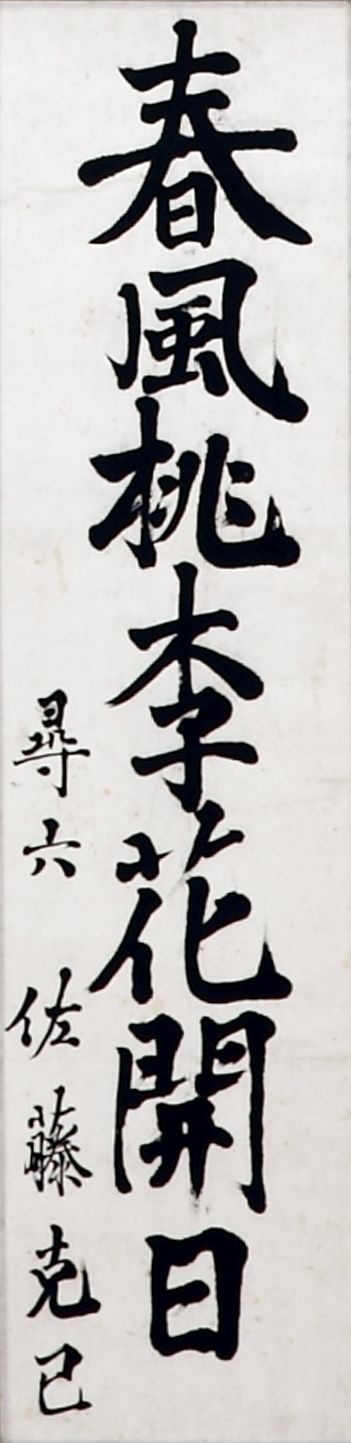 春風桃李花開日
尋六 佐藤克己